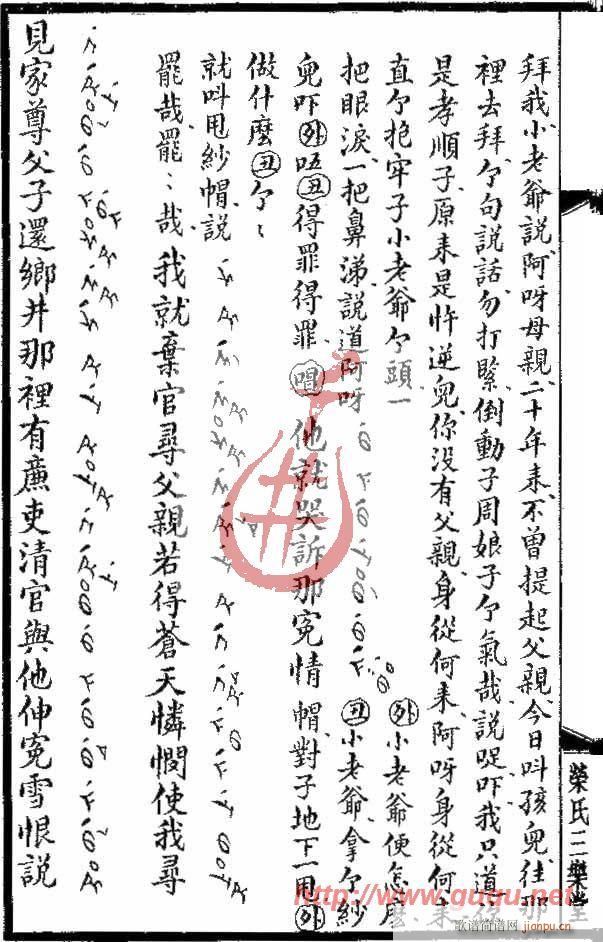 拜我小老爺說阿呀母親二十年來不曾提起父親今日呌孩兒往那
裡去拜个句說話勿打緊倒動子周娘子个氣哉說啶吓我只道
是孝順子原來是忤逆兒你没有父親身從何來阿呀身從何來
直个抱牢子小老爺个頭一
把眼淚一把鼻涕說道阿呀 外小老爺便怎麽
兒吓外唔丑得罪得罪 唱他就哭訴那寃情 丑小老爺拿个紗
帽對子地下一甩外
做什麽丑个個
就呌甩紗帽說
罷哉罷罷哉 我就棄官尋父親若得蒼天憐憫使我尋
見家尊父子還鄉井那裡有廉吏清官與他伸寃雪恨說
榮氏三樂堂
http://www.guqu.net
歌谱简谱网
jianpu.cn